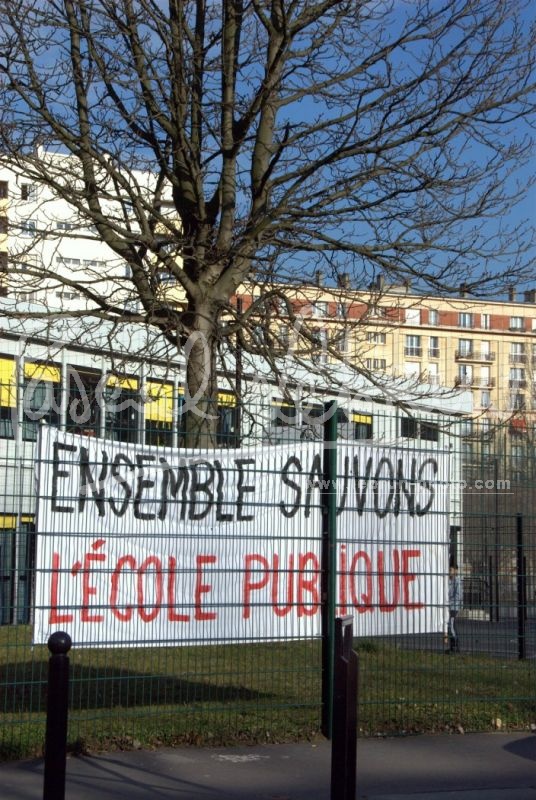 ENSEMBLE SAUVONS
L'ÉCOLE PUBLIQUE